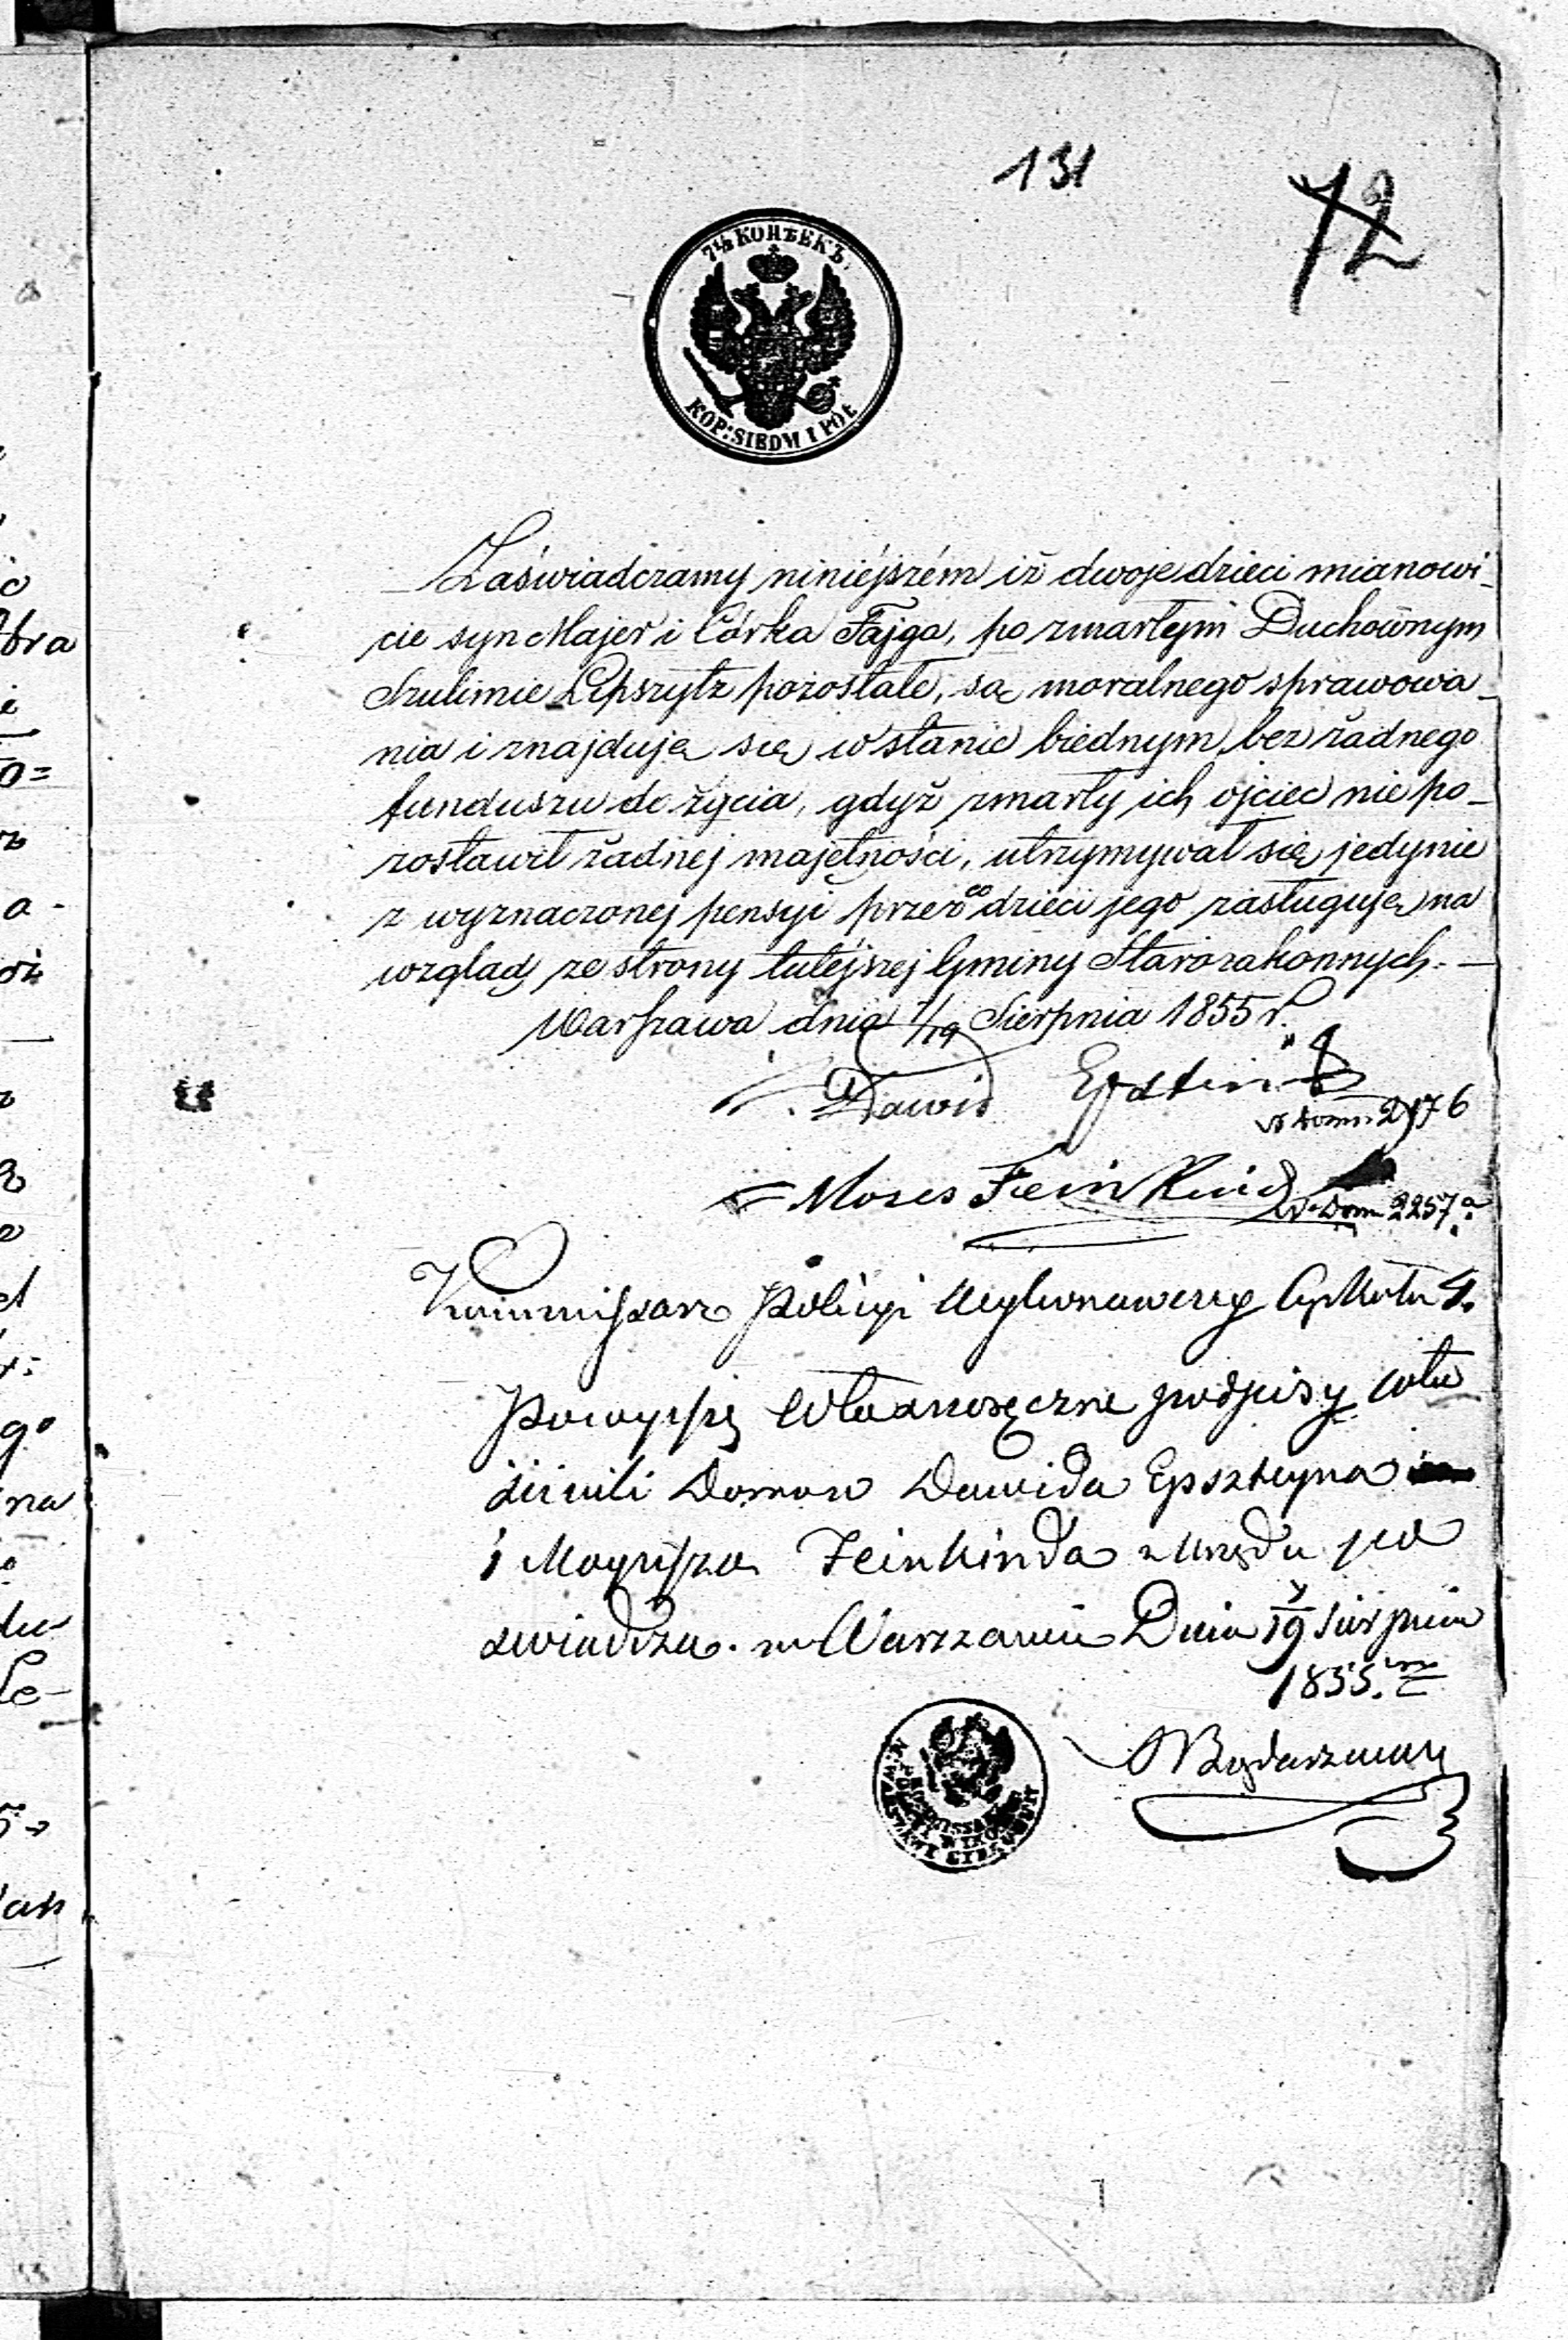 131
12
7½ КОПѢЕКЪ.
KOP: SIEDM I PÓŁ
Zaświadczamy niniéjszém iż dwoje dzieci mianowi-
cie syn Majer i Córka Fajga, po zmarłym Duchownym
Szulimie Lipszytz pozostałe, są moralnego sprawowa-
nia i znajdują się w stanie biednym bez żadnego
funduszu do życia, gdyż zmarły ich ojciec nie po-
zostawił żadnej majętności, utrzymywał się jedynie
z wyznaczonej pensyi przez co dzieci jego zasługują na
wzgląd ze strony tutéjszej Gminy Starozakonnych.-
Warszawa dnia 7/19 Sierpnia 1855 r.
Dawid Epstein
w domu 2176
Moses Feinkind
w Dom 2257a
Kommissarz Policyi Wykonawczey Cyrkułu 4.
Powyższe Własnoręczne podpisy wła
ścicieli Domow Dawida Epszteyna
i Moyżisza Feinkinda z Urzędu po
świadcza. w Warszawie Dnia 7/19 Sierpnia
1855.